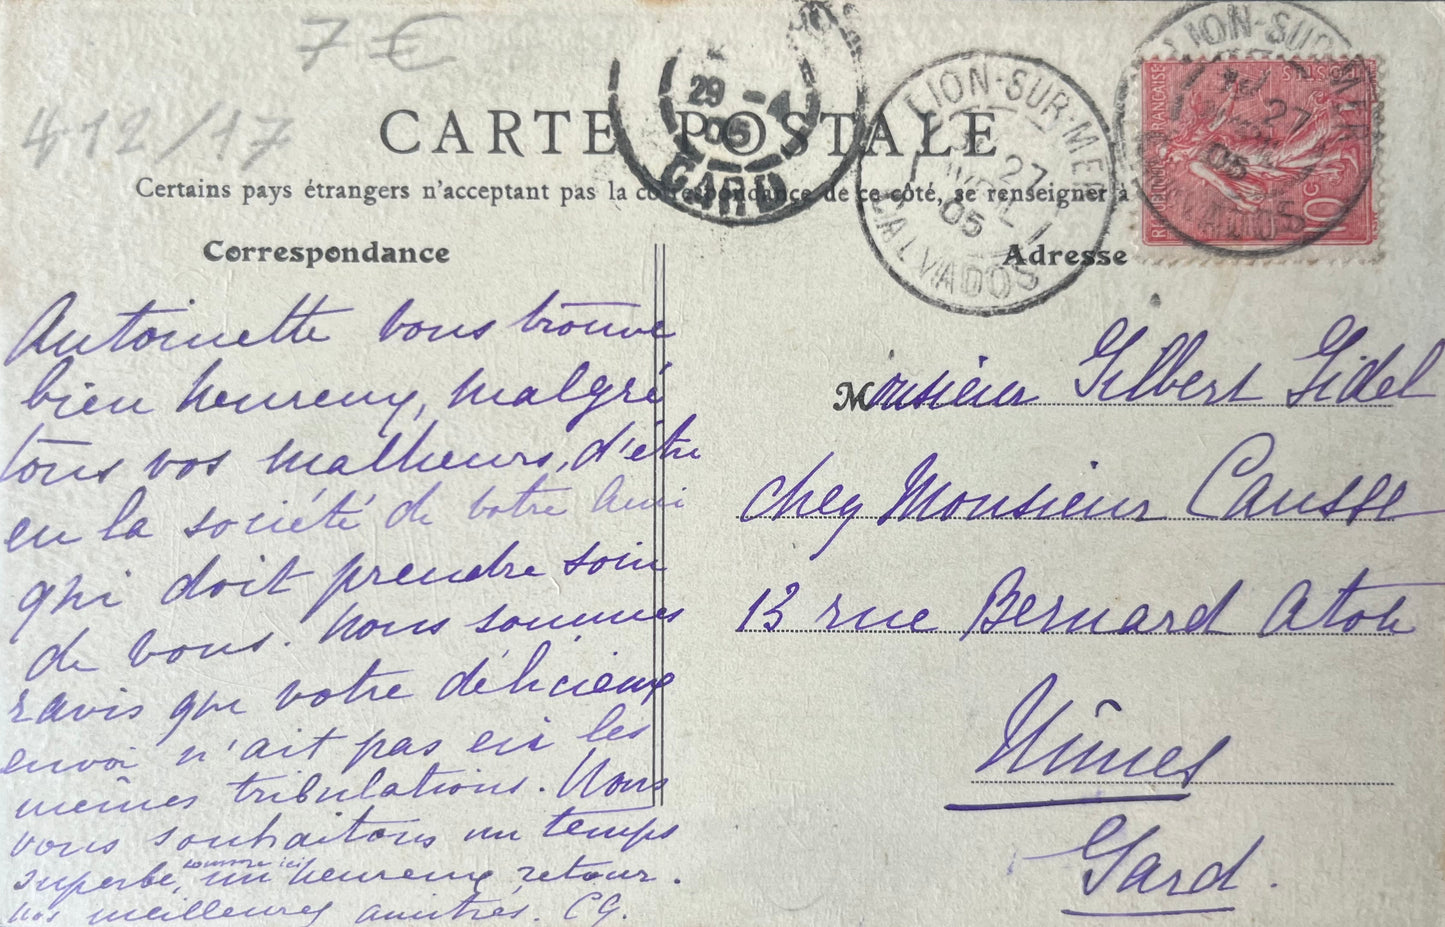 7 €
412/17
CARTE POSTALE
Certains pays étrangers n'acceptent pas la correspondance de ce côté, se renseigner à
Correspondance
Adresse
29 -4
05
GARD
LION-SUR-MER
27
AVRIL
05
CALVADOS
LION-SUR-MER
27
05
CALVADOS
POSTES
RÉPUBLIQUE FRANÇAISE
10 c
Antoinette vous trouve
bien heureux, malgré
tous vos malheurs, d'être
en la société de votre Ami
qui doit prendre soin
de vous. Nous sommes
ravis que votre délicieux
envoi n'ait pas eu les
mêmes tribulations. Nous
vous souhaitons un temps
superbe, comme ici, un heureux retour.
Nos meilleures amitiés. CG.
Monsieur Gilbert Gidel
chez Monsieur Causse
13 rue Bernard Aton
Nîmes
Gard.